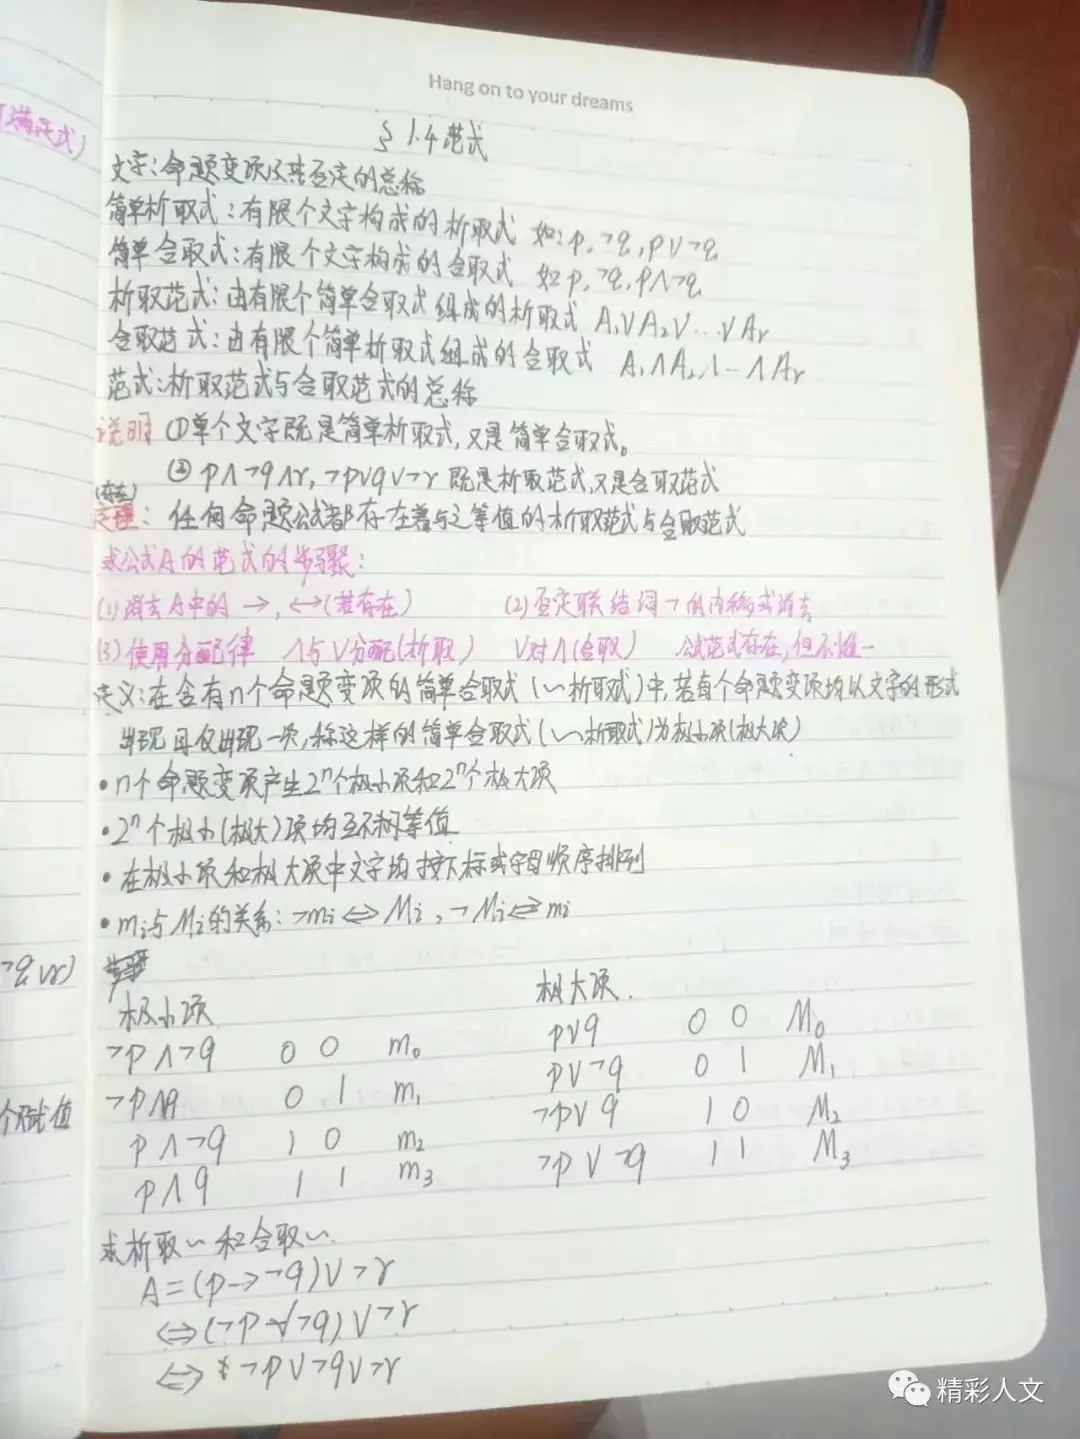 Hang on to your dreams
§ 1.4 范式
文字：命题变项及其否定的总称
简单析取式：有限个文字构成的析取式 如：p，¬q，p∨¬q
简单合取式：有限个文字构成的合取式 如 p，¬q，p∧¬q
析取范式：由有限个简单合取式组成的析取式 A₁∨A₂∨…∨Aᵣ
合取范式：由有限个简单析取式组成的合取式 A₁∧A₂∧…∧Aᵣ
范式：析取范式与合取范式的总称
说明 ①单个文字既是简单析取式，又是简单合取式。
② p∧¬q∧r，¬p∨q∨¬r 既是析取范式，又是合取范式
(存在)
定理：任何命题公式都存在着与之等值的析取范式与合取范式
求公式A的范式的步骤：
(1) 消去A中的 →，↔(若存在) (2) 否定联结词¬的内移或消去
(3) 使用分配律 ∧与∨分配(析取) ∨对∧(合取) 公式范式存在，但不惟一
定义：在含有n个命题变项的简单合取式(〜析取式)中，若每个命题变项均以文字的形式
出现且仅出现一次，称这样的简单合取式(〜析取式)为极小项(极大项)
• n个命题变项产生2ⁿ个极小项和2ⁿ个极大项
• 2ⁿ个极小(极大)项均互不相等值
• 在极小项和极大项中文字均按下标或字母顺序排列
• mᵢ与Mᵢ的关系：¬mᵢ⇔Mᵢ，¬Mᵢ⇔mᵢ
极小项 极大项.
¬p∧¬q 0 0 m₀ p∨q 0 0 M₀
¬p∧q 0 1 m₁ p∨¬q 0 1 M₁
p∧¬q 1 0 m₂ ¬p∨q 1 0 M₂
p∧q 1 1 m₃ ¬p∨¬q 1 1 M₃
求析取〜和合取〜.
A=(p→¬q)∨¬r
⇔(¬p∨¬q)∨¬r
⇔¬p∨¬q∨¬r
满足式)
¬q∨r)
个赋值
精彩人文